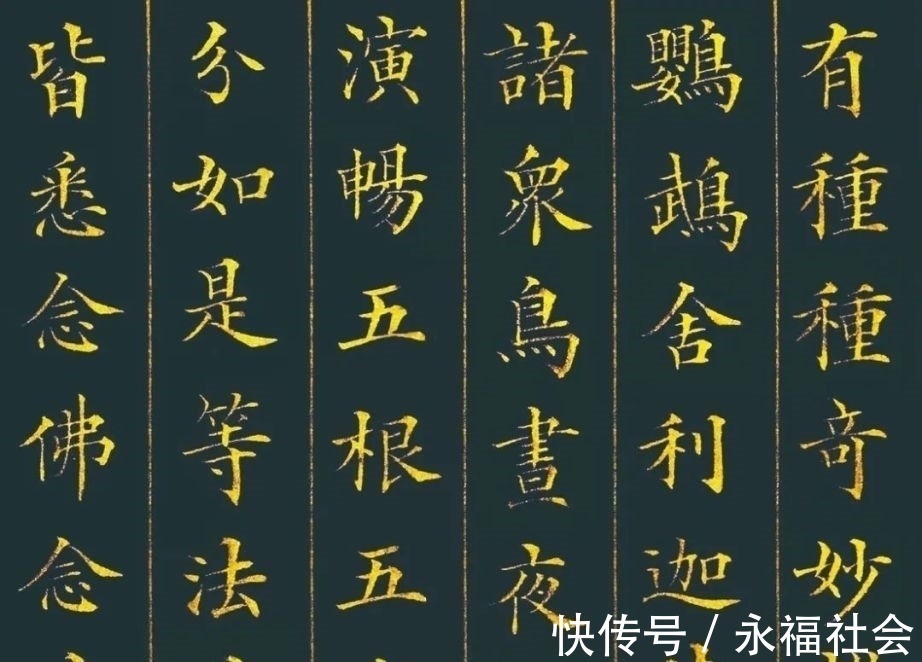 有種種奇妙
鸚鵡舍利迦
諸眾鳥晝夜
演暢五根五
分如是等法
皆悉念佛念
快传号 / 永福社会